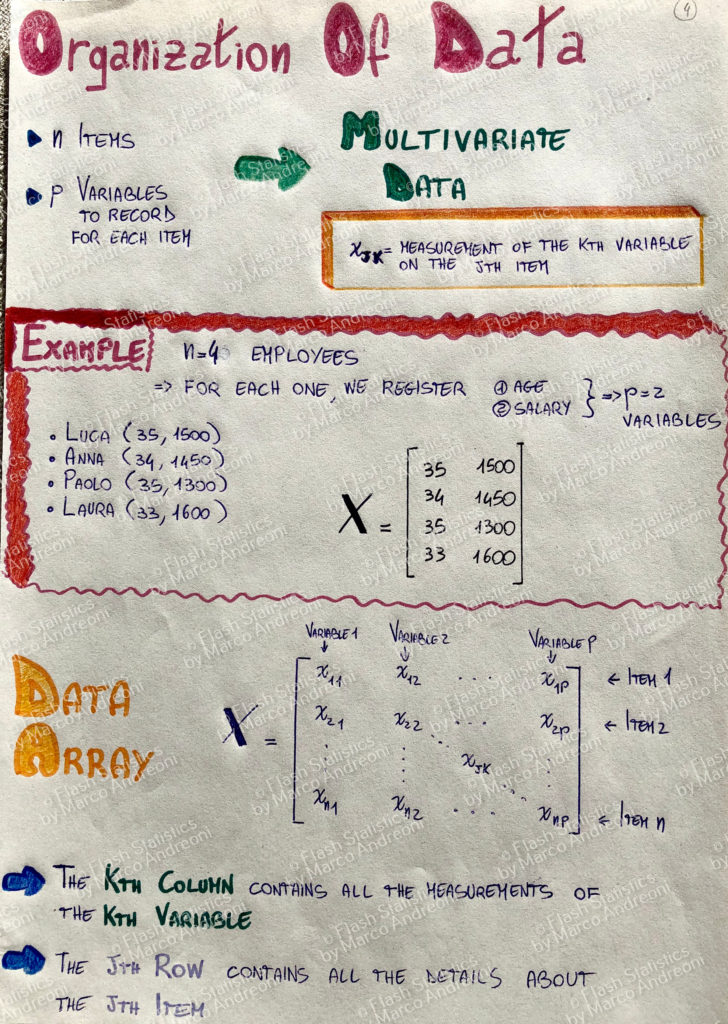 4
Organization Of Data
n Items
p Variables
to record
for each item
Multivariate
Data
x_jk = measurement of the kth variable
on the jth item
Example
n=4 employees
=> for each one, we register
① Age
② Salary
} => p=2
variables
• Luca (35, 1500)
• Anna (34, 1450)
• Paolo (35, 1300)
• Laura (33, 1600)
X =
35 1500
34 1450
35 1300
33 1600
Data
Array
Variable 1 Variable 2 Variable p
↓ ↓ ↓
X =
x_11 x_12 ... x_1p ← Item 1
x_21 x_22 ... x_2p ← Item 2
⋮ ⋮ x_jk ⋮
x_n1 x_n2 ... x_np ← Item n
The Kth Column contains all the measurements of
the Kth Variable
The Jth Row contains all the details about
the Jth Item
© Flash Statistics
by Marco Andreoni